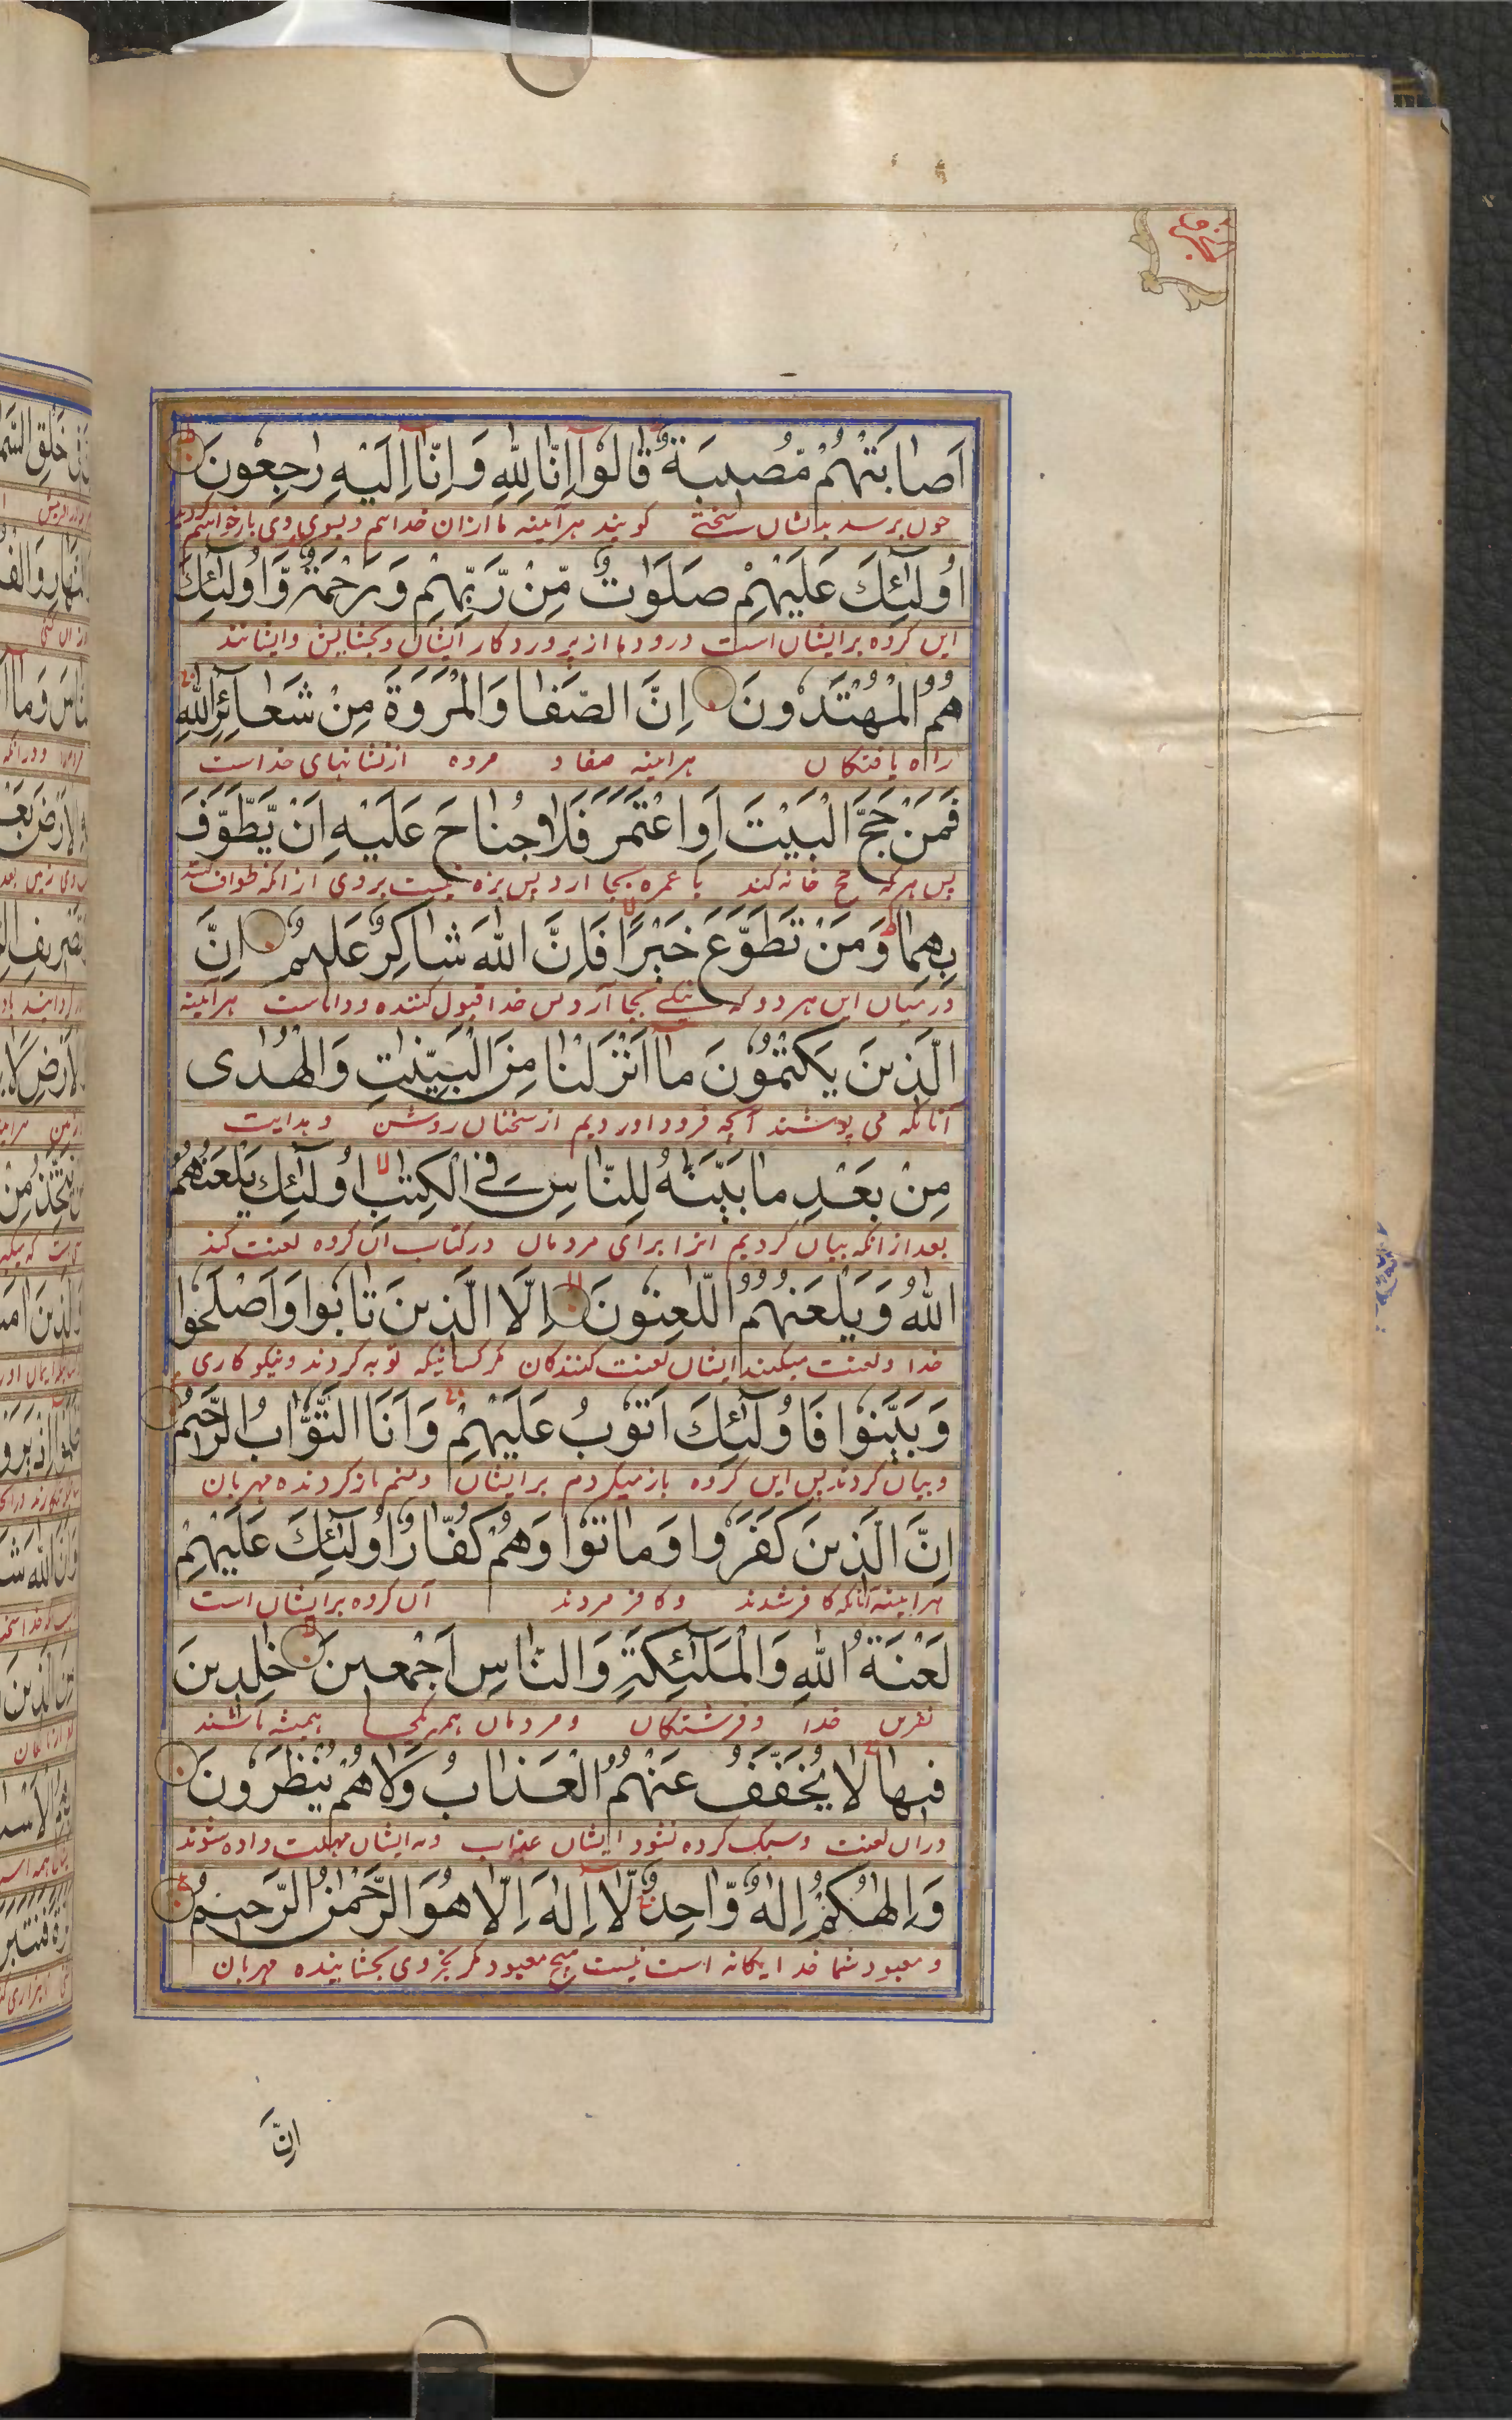 اَصٰابَتْهُمْ مُصٖيبَةٌ قٰالُوْٓا اِنّٰا لِلّٰهِ وَاِنّٰٓا اِلَيْهِ رٰاجِعُونَ
چون برسد بدیشان سختی گویند هرآینه ما ازان خدائیم و بسوی وی باز خواهیم گردید
اُولٰٓئِكَ عَلَيْهِمْ صَلَوٰاتٌ مِّنْ رَّبِّهِمْ وَرَحْمَةٌ وَّاُولٰٓئِكَ
این گروه برایشان است درودها از پروردگار ایشان و بخشایش و ایشانند
هُمُ الْمُهْتَدُونَ اِنَّ الصَّفٰا وَالْمَرْوَةَ مِنْ شَعٰٓائِرِ اللّٰهِ
راه یافتگان هرآینه صفا و مروه از نشانهای خداست
فَمَنْ حَجَّ الْبَيْتَ اَوِ اعْتَمَرَ فَلَا جُنٰاحَ عَلَيْهِ اَنْ يَّطَّوَّفَ
پس هرکه حج خانه کند یا عمره بجا آرد پس بزه نیست بر وی از آنکه طواف کند
بِهِمٰا وَمَنْ تَطَوَّعَ خَيْرًا فَاِنَّ اللّٰهَ شٰاكِرٌ عَلٖيمٌ اِنَّ
درمیان این هر دو و که نیکی بجا آرد پس خدا قبول کننده و داناست هرآینه
الَّذٖينَ يَكْتُمُونَ مٰٓا اَنْزَلْنٰا مِنَ الْبَيِّنٰتِ وَالْهُدٰى
آنانکه می پوشند آنچه فرود اوردیم از سخنان روشن و هدایت
مِنْ بَعْدِ مٰا بَيَّنّٰهُ لِلنّٰاسِ فِى الْكِتٰبِ اُولٰٓئِكَ يَلْعَنُهُمُ
بعد از آنکه بیان کردیم انرا برای مردمان در کتاب آن گروه لعنت کند
اللّٰهُ وَيَلْعَنُهُمُ اللّٰعِنُونَ اِلَّا الَّذٖينَ تٰابُوا وَاَصْلَحُوا
خدا و لعنت میکند ایشان لعنت کنندگان مگر کسانیکه توبه کردند و نیکوکاری
وَبَيَّنُوا فَاُولٰٓئِكَ اَتُوبُ عَلَيْهِمْ وَاَنَا التَّوّٰابُ الرَّحٖيمُ
و بیان کردند پس این گروه باز میگردم برایشان و منم باز گردنده مهربان
اِنَّ الَّذٖينَ كَفَرُوا وَمٰاتُوا وَهُمْ كُفّٰارٌ اُولٰٓئِكَ عَلَيْهِمْ
هرآینه آنانکه کافر شدند و کافر مردند آن گروه برایشان است
لَعْنَةُ اللّٰهِ وَالْمَلٰٓئِكَةِ وَالنّٰاسِ اَجْمَعٖينَ خٰلِدٖينَ
نفرین خدا و فرشتگان و مردمان همه یکجا همیشه باشند
فٖيهٰا لَا يُخَفَّفُ عَنْهُمُ الْعَذٰابُ وَلَا هُمْ يُنْظَرُونَ
دران لعنت و سبک کرده نشود ایشان عذاب و نه ایشان مهلت داده شوند
وَاِلٰهُكُمْ اِلٰهٌ وّٰاحِدٌ لَّا اِلٰهَ اِلَّا هُوَ الرَّحْمٰنُ الرَّحٖيمُ
و معبود شما خدا یگانه است نیست هیچ معبود مگر بجز وی بخشاینده مهربان
اِنَّ